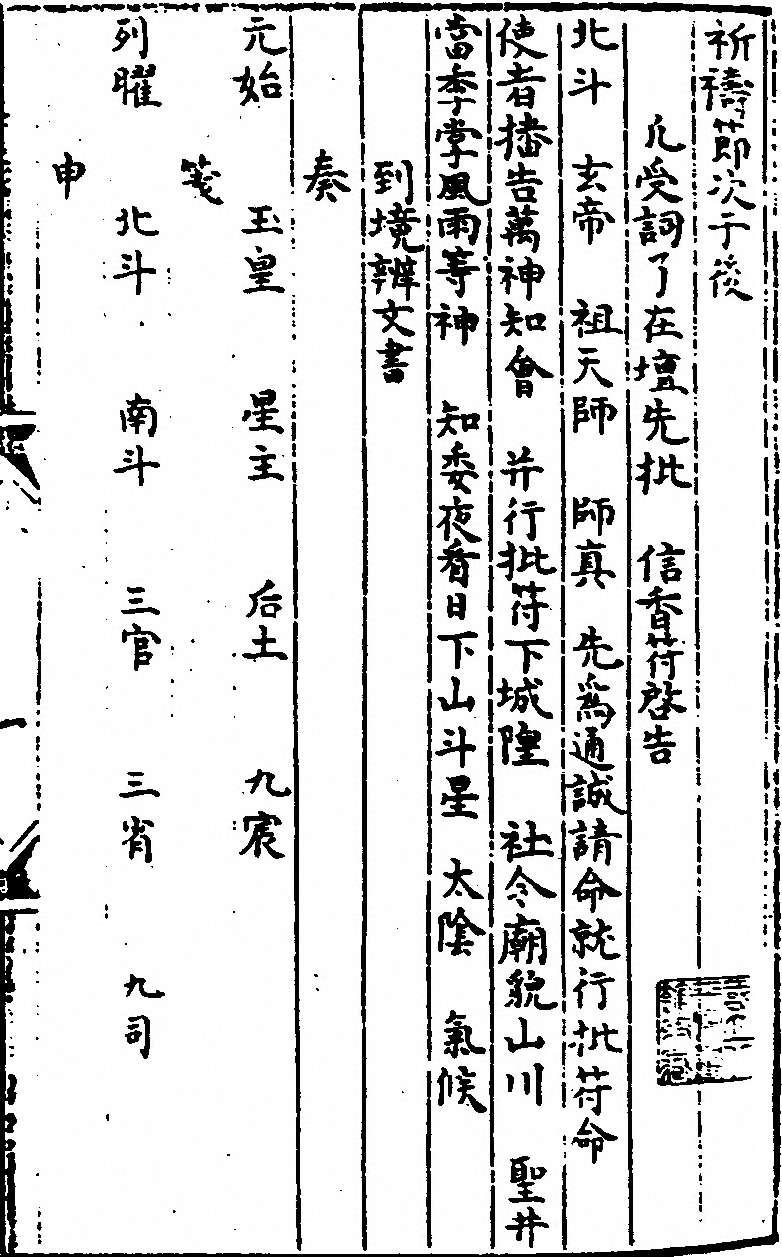 祈禱節次于後
凡受詞了在壇先批　信香符啓告
北斗　玄帝　祖天師　師真　先爲通誠請命就行批符命
使者播告萬神知會　并行批符下城隍　社令廟貌山川　聖井
當季掌風雨等神　知委夜看日下山斗星　太陰　氣候
到境辦文書
奏
元始　玉皇　星主　后土　九宸
箋
列曜　北斗　南斗　三官　三省　九司
申